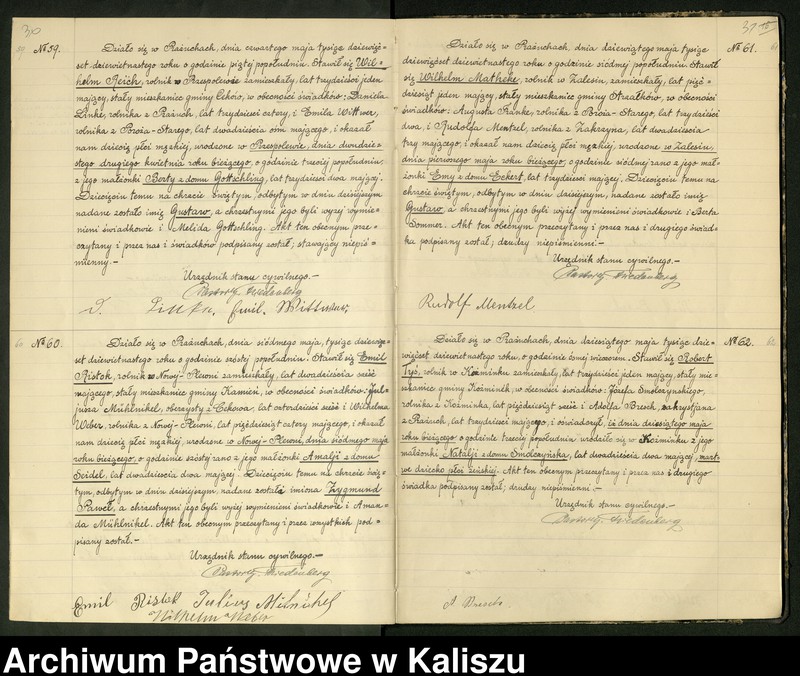 30
59
№ 59.
Działo się w Prażuchach, dnia czwartego maja tysiąc dziewięć-
set dziewiętnastego roku o godzinie piątej popołudniu. Stawił się Wil-
helm Reich, rolnik w Przespolewie zamieszkały, lat trzydzieści jeden
mający, stały mieszkaniec gminy Ceków, w obecności świadków: Daniela
Linke, rolnika z Prażuch, lat trzydzieści cztery, i Emila Wittwer,
rolnika z Poroża-Starego, lat dwadzieścia ośm mającego, i okazał
nam dziecię płci męzkiej, urodzone w Przespolewie, dnia dwudzie-
stego drugiego kwietnia roku bieżącego, o godzinie trzeciej popołudniu,
z jego małżonki Berty z domu Gottschling, lat trzydzieści dwa mającej.
Dziecięciu temu na chrzcie świętym, odbytym w dniu dzisiejszym
nadane zostało imię Gustaw, a chrzestnymi jego byli wyżej wymie-
nieni świadkowie i Melida Gottschling. Akt ten obecnym prze-
czytany i przez nas i świadków podpisany został; stawający niepiś-
mienny.—
Urzędnik stanu cywilnego.—
D. Linke, Emil. Wittwer,
60
№ 60.
Działo się w Prażuchach, dnia siódmego maja, tysiąc dziewięć-
set dziewiętnastego roku o godzinie szóstej popołudniu. Stawił się Emil
Ristok, rolnik w Nowej-Plewni zamieszkały, lat dwadzieścia sześć
mającego, stały mieszkaniec gminy Kamień, w obecności świadków: Jul-
jusza Mühlnikel, oberżysty z Cekowa, lat czterdzieści sześć i Wilhelma
Weber, rolnika z Nowej-Plewni, lat pięćdziesiąt cztery mającego, i okazał
nam dziecię płci męzkiej, urodzone w Nowej-Plewni, dnia siódmego maja
roku bieżącego, o godzinie szóstej rano z jego małżonki Amalji z domu
Seidel, lat dwadzieścia dwa mającej. Dziecięciu temu na chrzcie świę-
tym, odbytym w dniu dzisiejszym, nadane zostały imiona Zygmund
Paweł, a chrzestnymi jego byli wyżej wymienieni świadkowie i Aman-
da Mühlnikel. Akt ten obecnym przeczytany i przez wszystkich pod-
pisany został.—
Urzędnik stanu cywilnego.—
Emil Ristok Julius Milnickel
Wilhelm Weber
31
61
№ 61.
Działo się w Prażuchach, dnia dziewiątego maja, tysiąc
dziewięćset dziewiętnastego roku o godzinie siódmej popołudniu. Stawił
się Wilhelm Matheke, rolnik w Zalesiu, zamieszkały, lat pięć-
dziesiąt jeden mający, stały mieszkaniec gminy Strzałków, w obecności
świadków: Augusta Franke, rolnika z Poroża-Starego, lat trzydzieści
dwa, i Rudolfa Mentzel, rolnika z Zakrzyna, lat dwadzieścia
trzy mającego, i okazał nam dziecię płci męzkiej, urodzone w Zalesiu,
dnia pierwszego maja roku bieżącego, o godzinie siódmej rano z jego mał-
żonki Emy z domu Eckert, lat trzydzieści mającej. Dziecięciu temu na
chrzcie świętym, odbytym w dniu dzisiejszym, nadane zostało imię
Gustaw, a chrzestnymi jego byli wyżej wymienieni świadkowie i Berta
Sommer. Akt ten obecnym przeczytany i przez nas i drugiego świad-
ka podpisany został; drudzy niepiśmienni.—
Urzędnik stanu cywilnego.—
Rudolf Mentzel
62
№ 62.
Działo się w Prażuchach, dnia dziesiątego maja tysiąc dzie-
więćset dziewiętnastego roku, o godzinie ósmej wieczorem. Stawił się Robert
Tyś, rolnik w Koźminku zamieszkały, lat trzydzieści jeden mający, stały mie-
szkaniec gminy Koźminek, w obecności świadków: Józefa Smolczyńskiego,
rolnika z Koźminka, lat pięćdziesiąt sześć i Adolfa Bresch, zakrystjana
z Prażuch, lat trzydzieści mającego, i oświadczył, iż dnia dziesiątego maja
roku bieżącego o godzinie trzeciej popołudniu urodziło się w Koźminku z jego
małżonki Natalji z domu Smolczyńska, lat dwadzieścia dwa mającej, mart-
we dziecko płci żeńskiej. Akt ten obecnym przeczytany i przez nas i drugiego
świadka podpisany został; drudzy niepiśmienni.—
Urzędnik stanu cywilnego.—
Archiwum Państwowe w Kaliszu